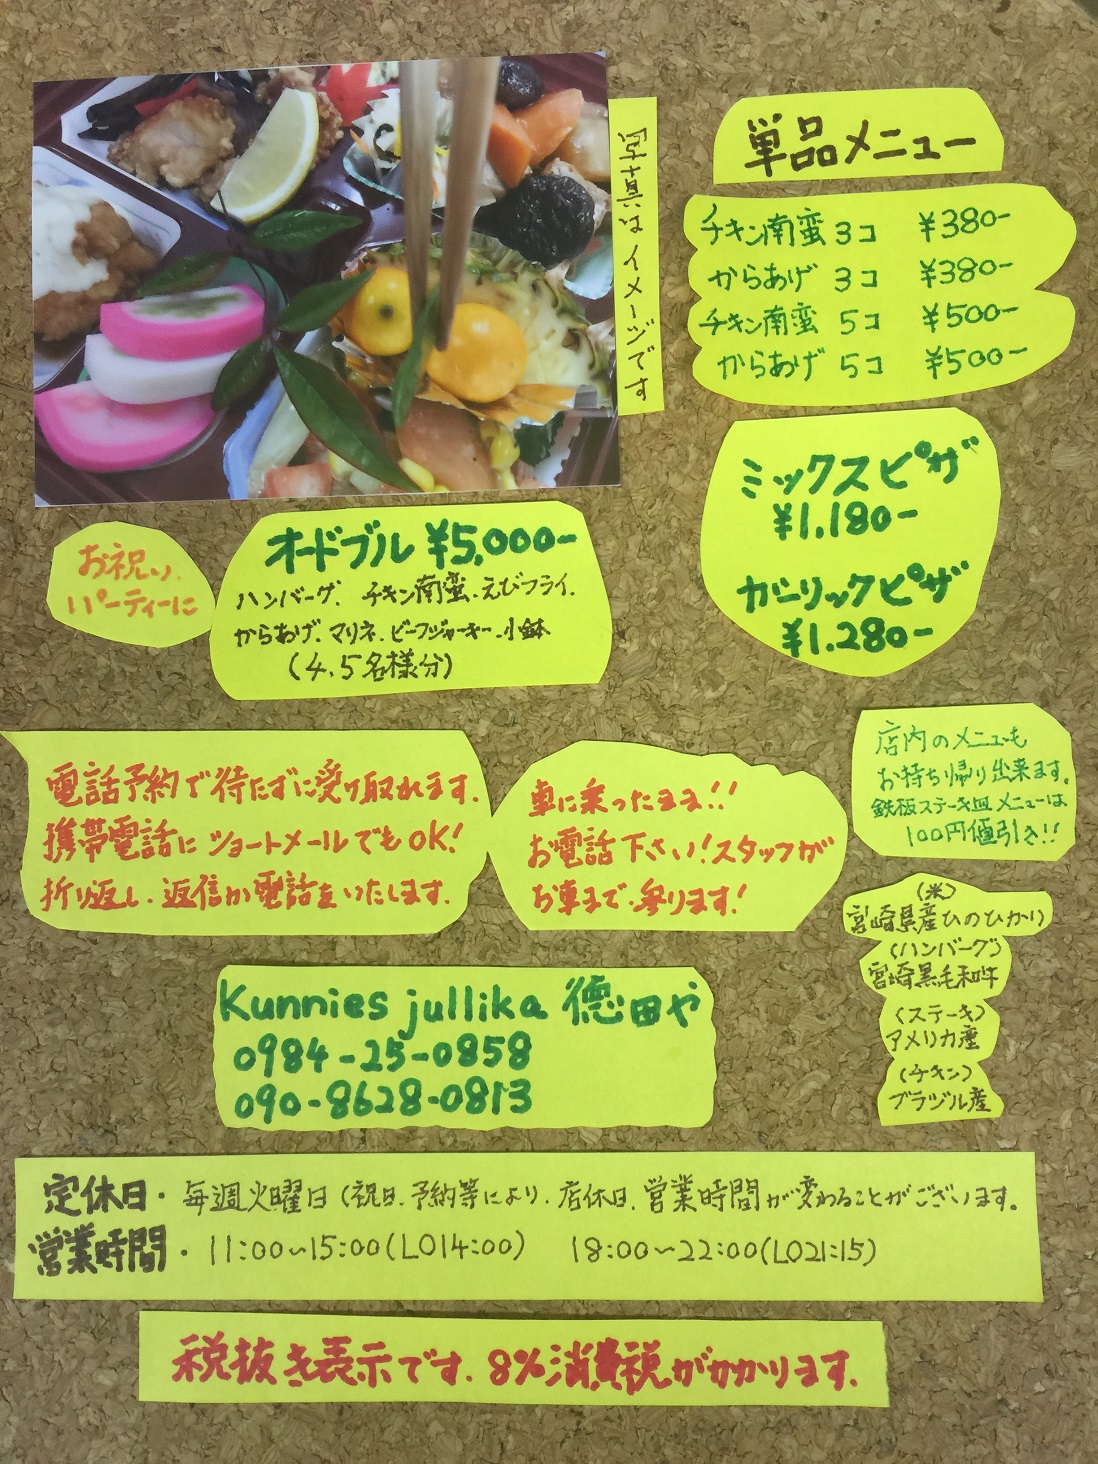 写真はイメージです
単品メニュー
チキン南蛮 3コ ¥380-
からあげ 3コ ¥380-
チキン南蛮 5コ ¥500-
からあげ 5コ ¥500-
ミックスピザ
¥1,180-
ガーリックピザ
¥1,280-
お祝い、
パーティーに
オードブル ¥5,000-
ハンバーグ、チキン南蛮、えびフライ、
からあげ、マリネ、ビーフジャーキー、小鉢
(4、5名様分)
店内のメニューも
お持ち帰り出来ます。
鉄板ステーキ皿メニューは
100円値引き!!
電話予約で待たずに受け取れます。
携帯電話にショートメールでもOK!
折り返し、返信か電話をいたします。
車に乗ったまま!!
お電話下さい!スタッフが
お車まで参ります!
(米)
宮崎県産ひのひかり
(ハンバーグ)
宮崎黒毛和牛
(ステーキ)
アメリカ産
(チキン)
ブラジル産
Kunnies jullika 徳田や
0984-25-0858
090-8628-0813
定休日・毎週火曜日(祝日、予約等により、店休日、営業時間が変わることがございます。
営業時間・11:00~15:00(LO14:00) 18:00~22:00(LO21:15)
税抜き表示です。8%消費税がかかります。